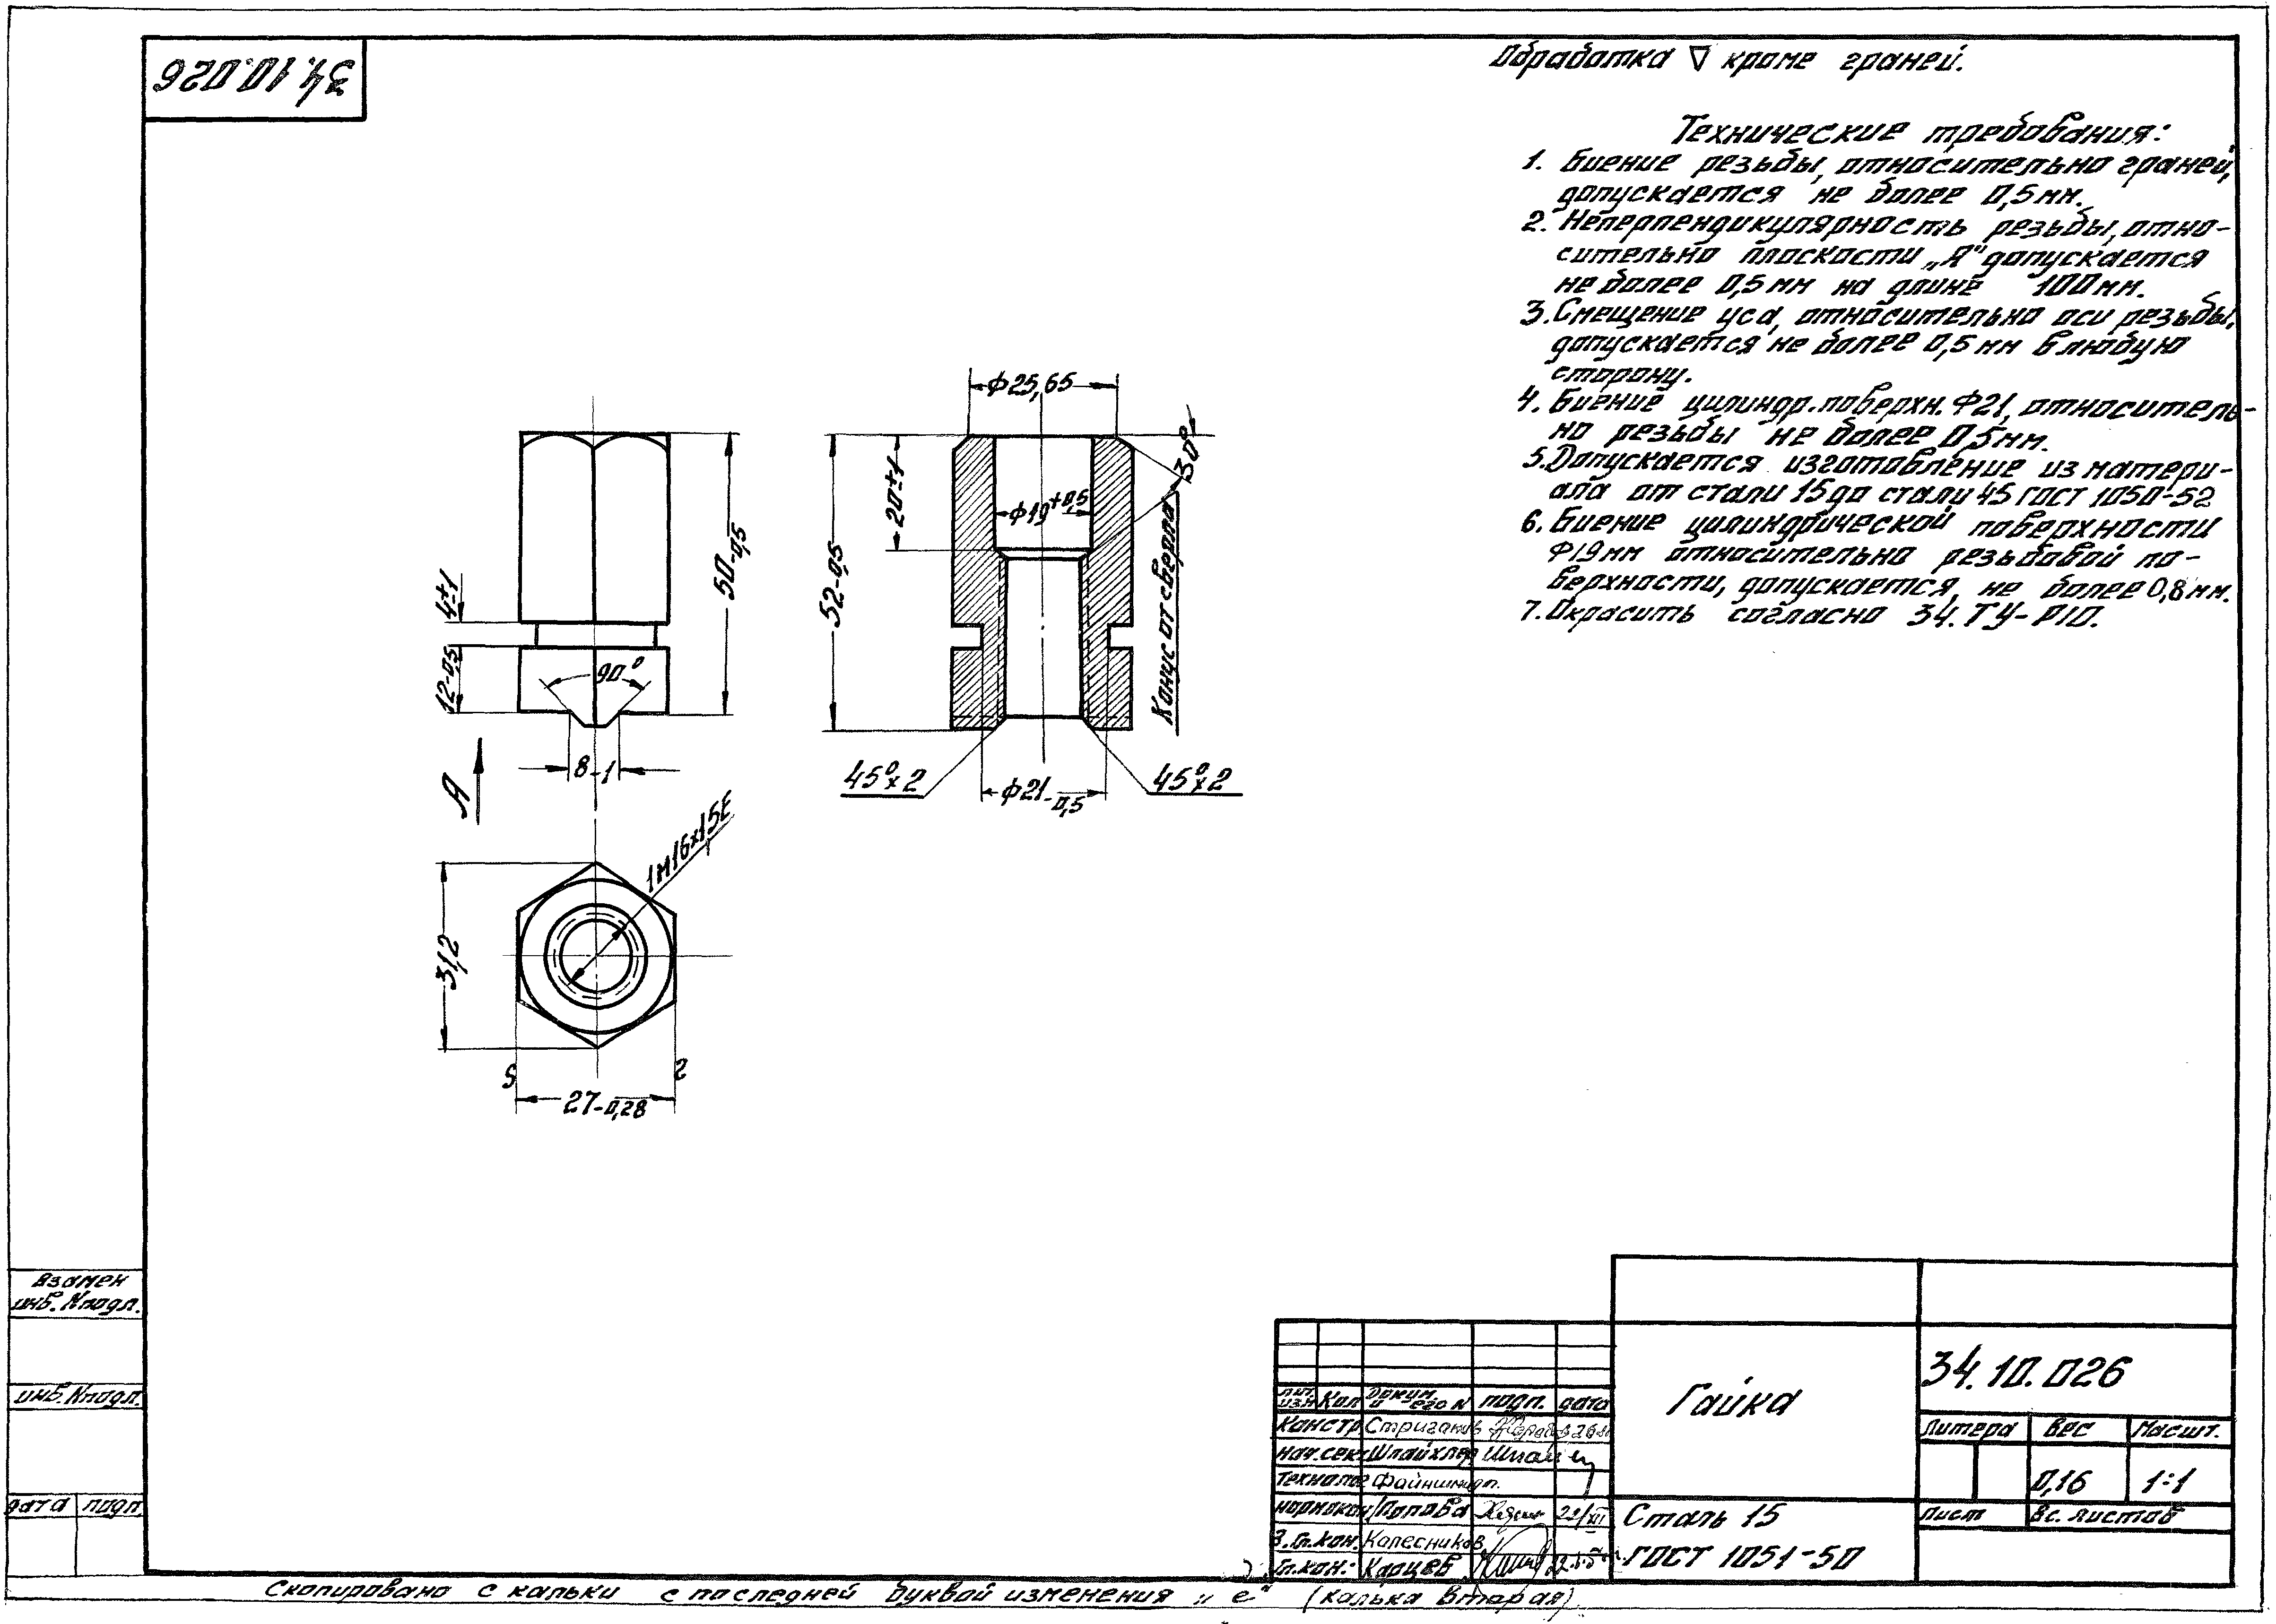 34.10.026
Обработка ▽ кроме граней.
Технические требования:
1. Биение резьбы, относительно граней,
допускается не более 0,5мм.
2. Неперпендикулярность резьбы, отно-
сительно плоскости „А" допускается
не более 0,5мм на длине 100мм.
3. Смещение уса, относительно оси резьбы,
допускается не более 0,5мм в любую
сторону.
4. Биение цилиндр. поверхн. Ф21, относитель-
но резьбы не более 0,5мм.
5. Допускается изготовление из матери-
ала от стали 15 до стали 45 ГОСТ 1050-52
6. Биение цилиндрической поверхности
Ф19мм относительно резьбовой по-
верхности, допускается, не более 0,8мм.
7. Окрасить согласно 34.ТУ-Р10.
4±1
12-0,5
90°
50-0,5
8-1
А
ф25,65
30°
20±1
ф19+0,5
52-0,5
Конус от сверла
45°х2
ф21-0,5
45°х2
1М16х1,5Е
31,2
S
2
27-0,28
Взамен
инв. №подл.
инв. №подл.
дата подп.
лит. изм Кол Докум. и его № подп. дата
Констр Стриганов
нач. сек. Шлайхлер
Технолог Файншмидт.
нормокон Попова 22/XII
З. Гл. кон. Колесников
Гл. кон.: Карцев
Гайка
34.10.026
Литера Вес Масшт.
0,16 1:1
Лист Вс. листов
Сталь 15
ГОСТ 1051-50
Скопировано с кальки с последней буквой изменения „е" (калька вторая)